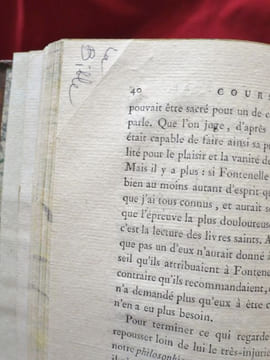 la
Bible
40 COURS
pouvait être sacré pour un de c
parle. Que l'on juge, d'après
était capable de faire ainsi sa p
lité pour le plaisir et la vanité d
Mais il y a plus : si Fontenelle
bien au moins autant d'esprit q
que j'ai tous connus, et aurait s
que l'épreuve la plus douloureus
c'est la lecture des livres saints. A
que pas un d'eux n'aurait donné à
seil qu'ils attribuaient à Fontenel
contraire qu'ils recommandaient,
n'a demandé plus qu'eux à être c
n'en a eu plus besoin.
Pour terminer ce qui regarde
repousser loin de lui le très-injur
notre philosophie